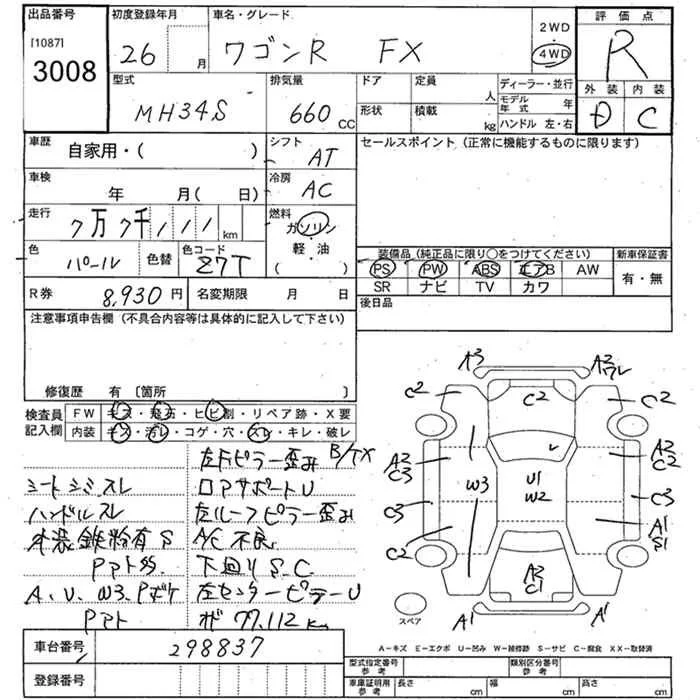 出品番号
[1087]
3008
初度登録年月
26 月
車名・グレード
ワゴンR FX
2WD
4WD
評価点
R
外装 内装
D C
型式
MH34S
排気量
660 CC
ドア
形状
定員
人
積載
kg
ディーラー・並行
モデル年式 年
ハンドル 左・右
車歴
自家用・( )
シフト
AT
セールスポイント(正常に機能するものに限ります)
車検
年 月( 日)
冷房
AC
走行
7万7千111 km
燃料
ガソリン
軽・油
( )
色
パール
色替
色コード
Z7T
装備品(純正品に限り○をつけてください)
新車保証書
PS PW ABS エアB AW
SR ナビ TV カワ
有・無
R券
8,930円
名変期限 月 日
後日品
注意事項申告欄(不具合内容等は具体的に記入して下さい)
修復歴 有〔箇所 〕
検査員記入欄
FW キズ・飛石・ヒビ割・リペア跡・X要
内装 キズ・汚レ・コゲ・穴・スレ・キレ・破レ
左Fピラー歪み B/TX
シートシミスレ
ロアサポートU
ハンドルスレ
左ルーフピラー歪み
外装鉄粉有S
A/C不良
下廻りS.C
A.U.W3.Pボケ
左センターピラーU
77,112 km
A3
A2
C2
C2
C2
A2
C3
A2
C2
W3
U1
W2
C3
C3
A1
S1
C2
A2
C1
A1
A1
スペア
A-キズ E-エクボ U-凹み W-補修跡 S-サビ C-腐食 XX-取替済
車台番号
298837
登録番号
型式指定番号 参考
類別区分番号 参考
車庫証明用 参考
長さ cm
幅 cm
高さ cm